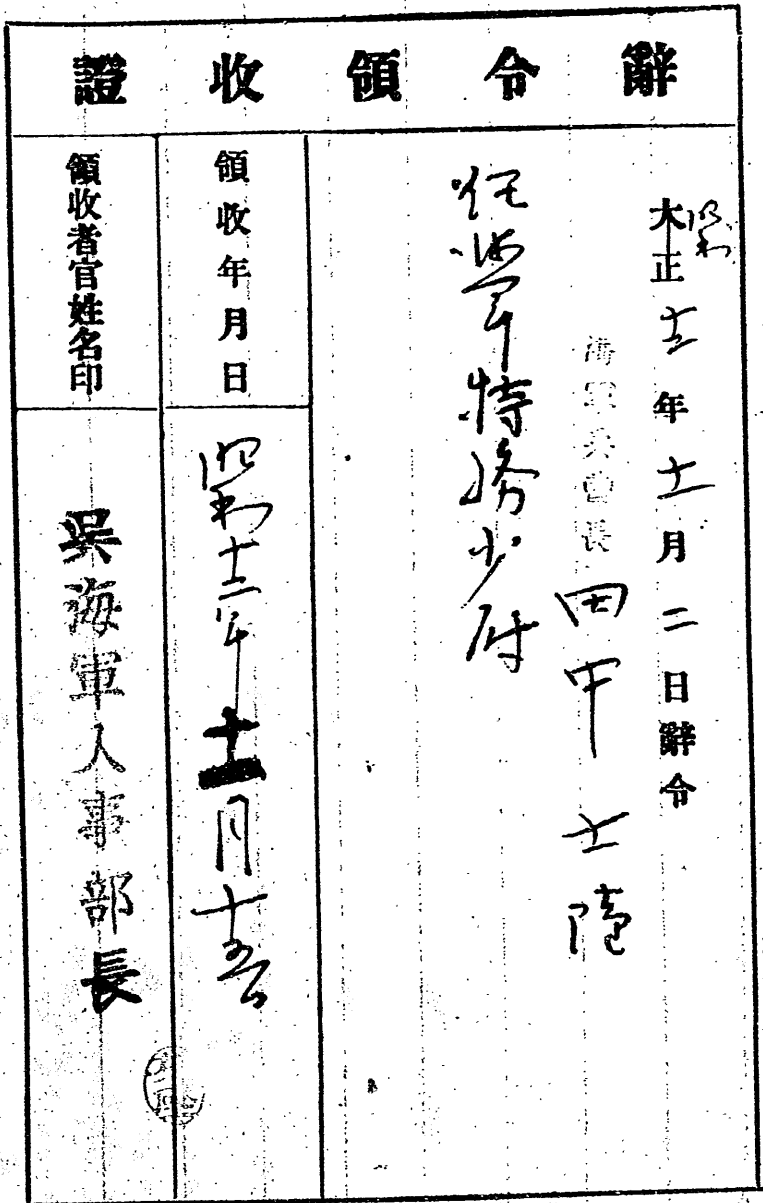 辭令領收證
昭和
大正十二年十一月二日辭令
海軍兵曹長 田中
任海軍特務少尉
領收年月日
昭和十二年十一月十五日
領收者官姓名印
呉海軍人事部長